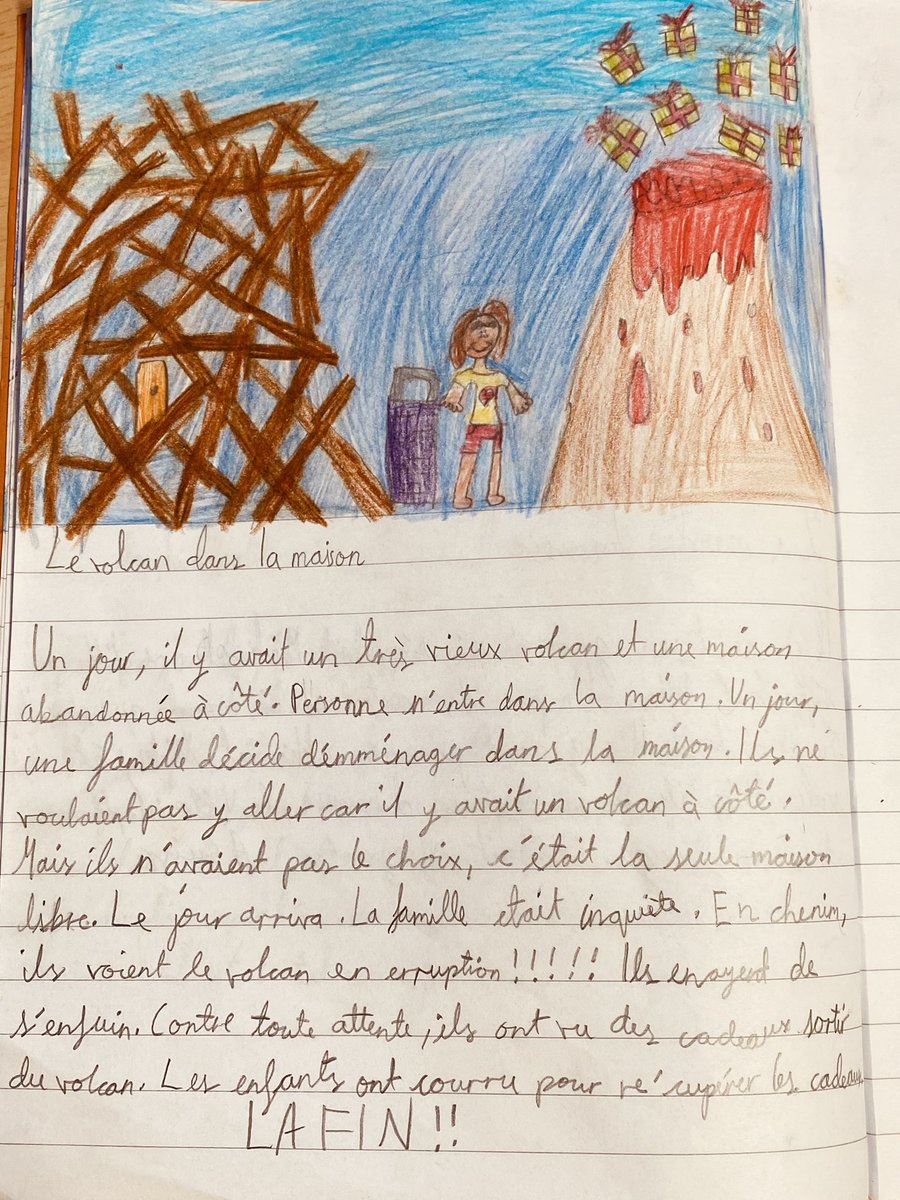 Le volcan dans la maison
Un jour, il y avait un très vieux volcan et une maison
abandonnée à côté. Personne n'entre dans la maison. Un jour,
une famille décide démménager dans la maison. Ils ne
voulaient pas y aller car il y avait un volcan à côté.
Mais ils n'avaient pas le choix, c'était la seule maison
libre. Le jour arriva. La famille était inquiète. En chenim,
ils voient le volcan en erruption!!!!! Ils de
s'enfuin. Contre toute attente, ils ont vu des cadeaux sortir
du volcan. Les enfants ont courru pour ré cupérer les cadeaux.
LA FIN!!